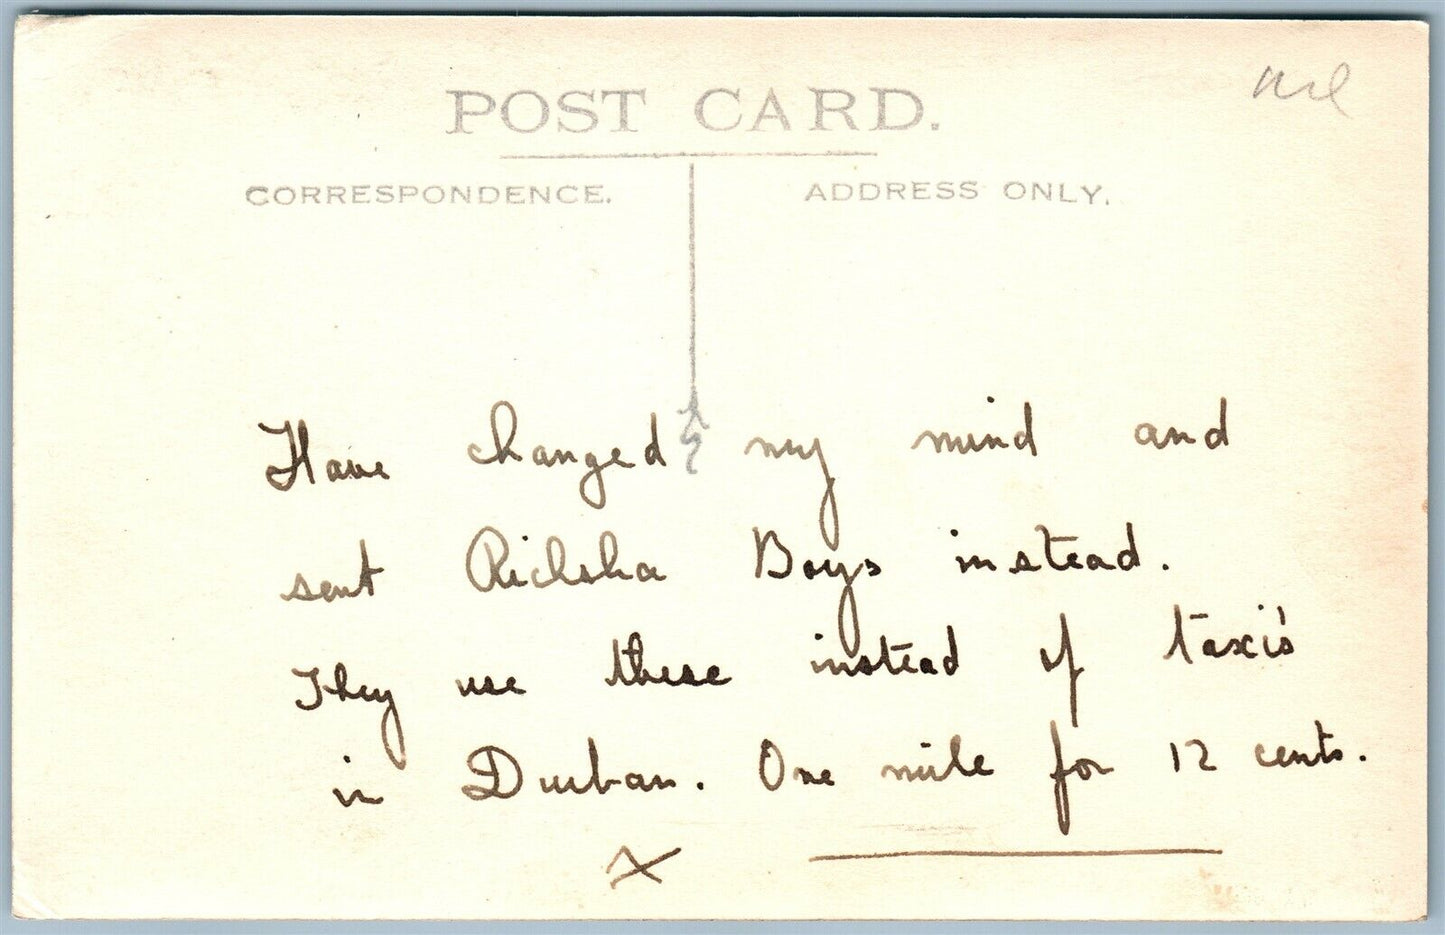 POST CARD.
CORRESPONDENCE. ADDRESS ONLY.
Have changed my mind and
sent Ricksha Boys instead.
They use these instead of taxi's
in Durban. One mile for 12 cents.
X